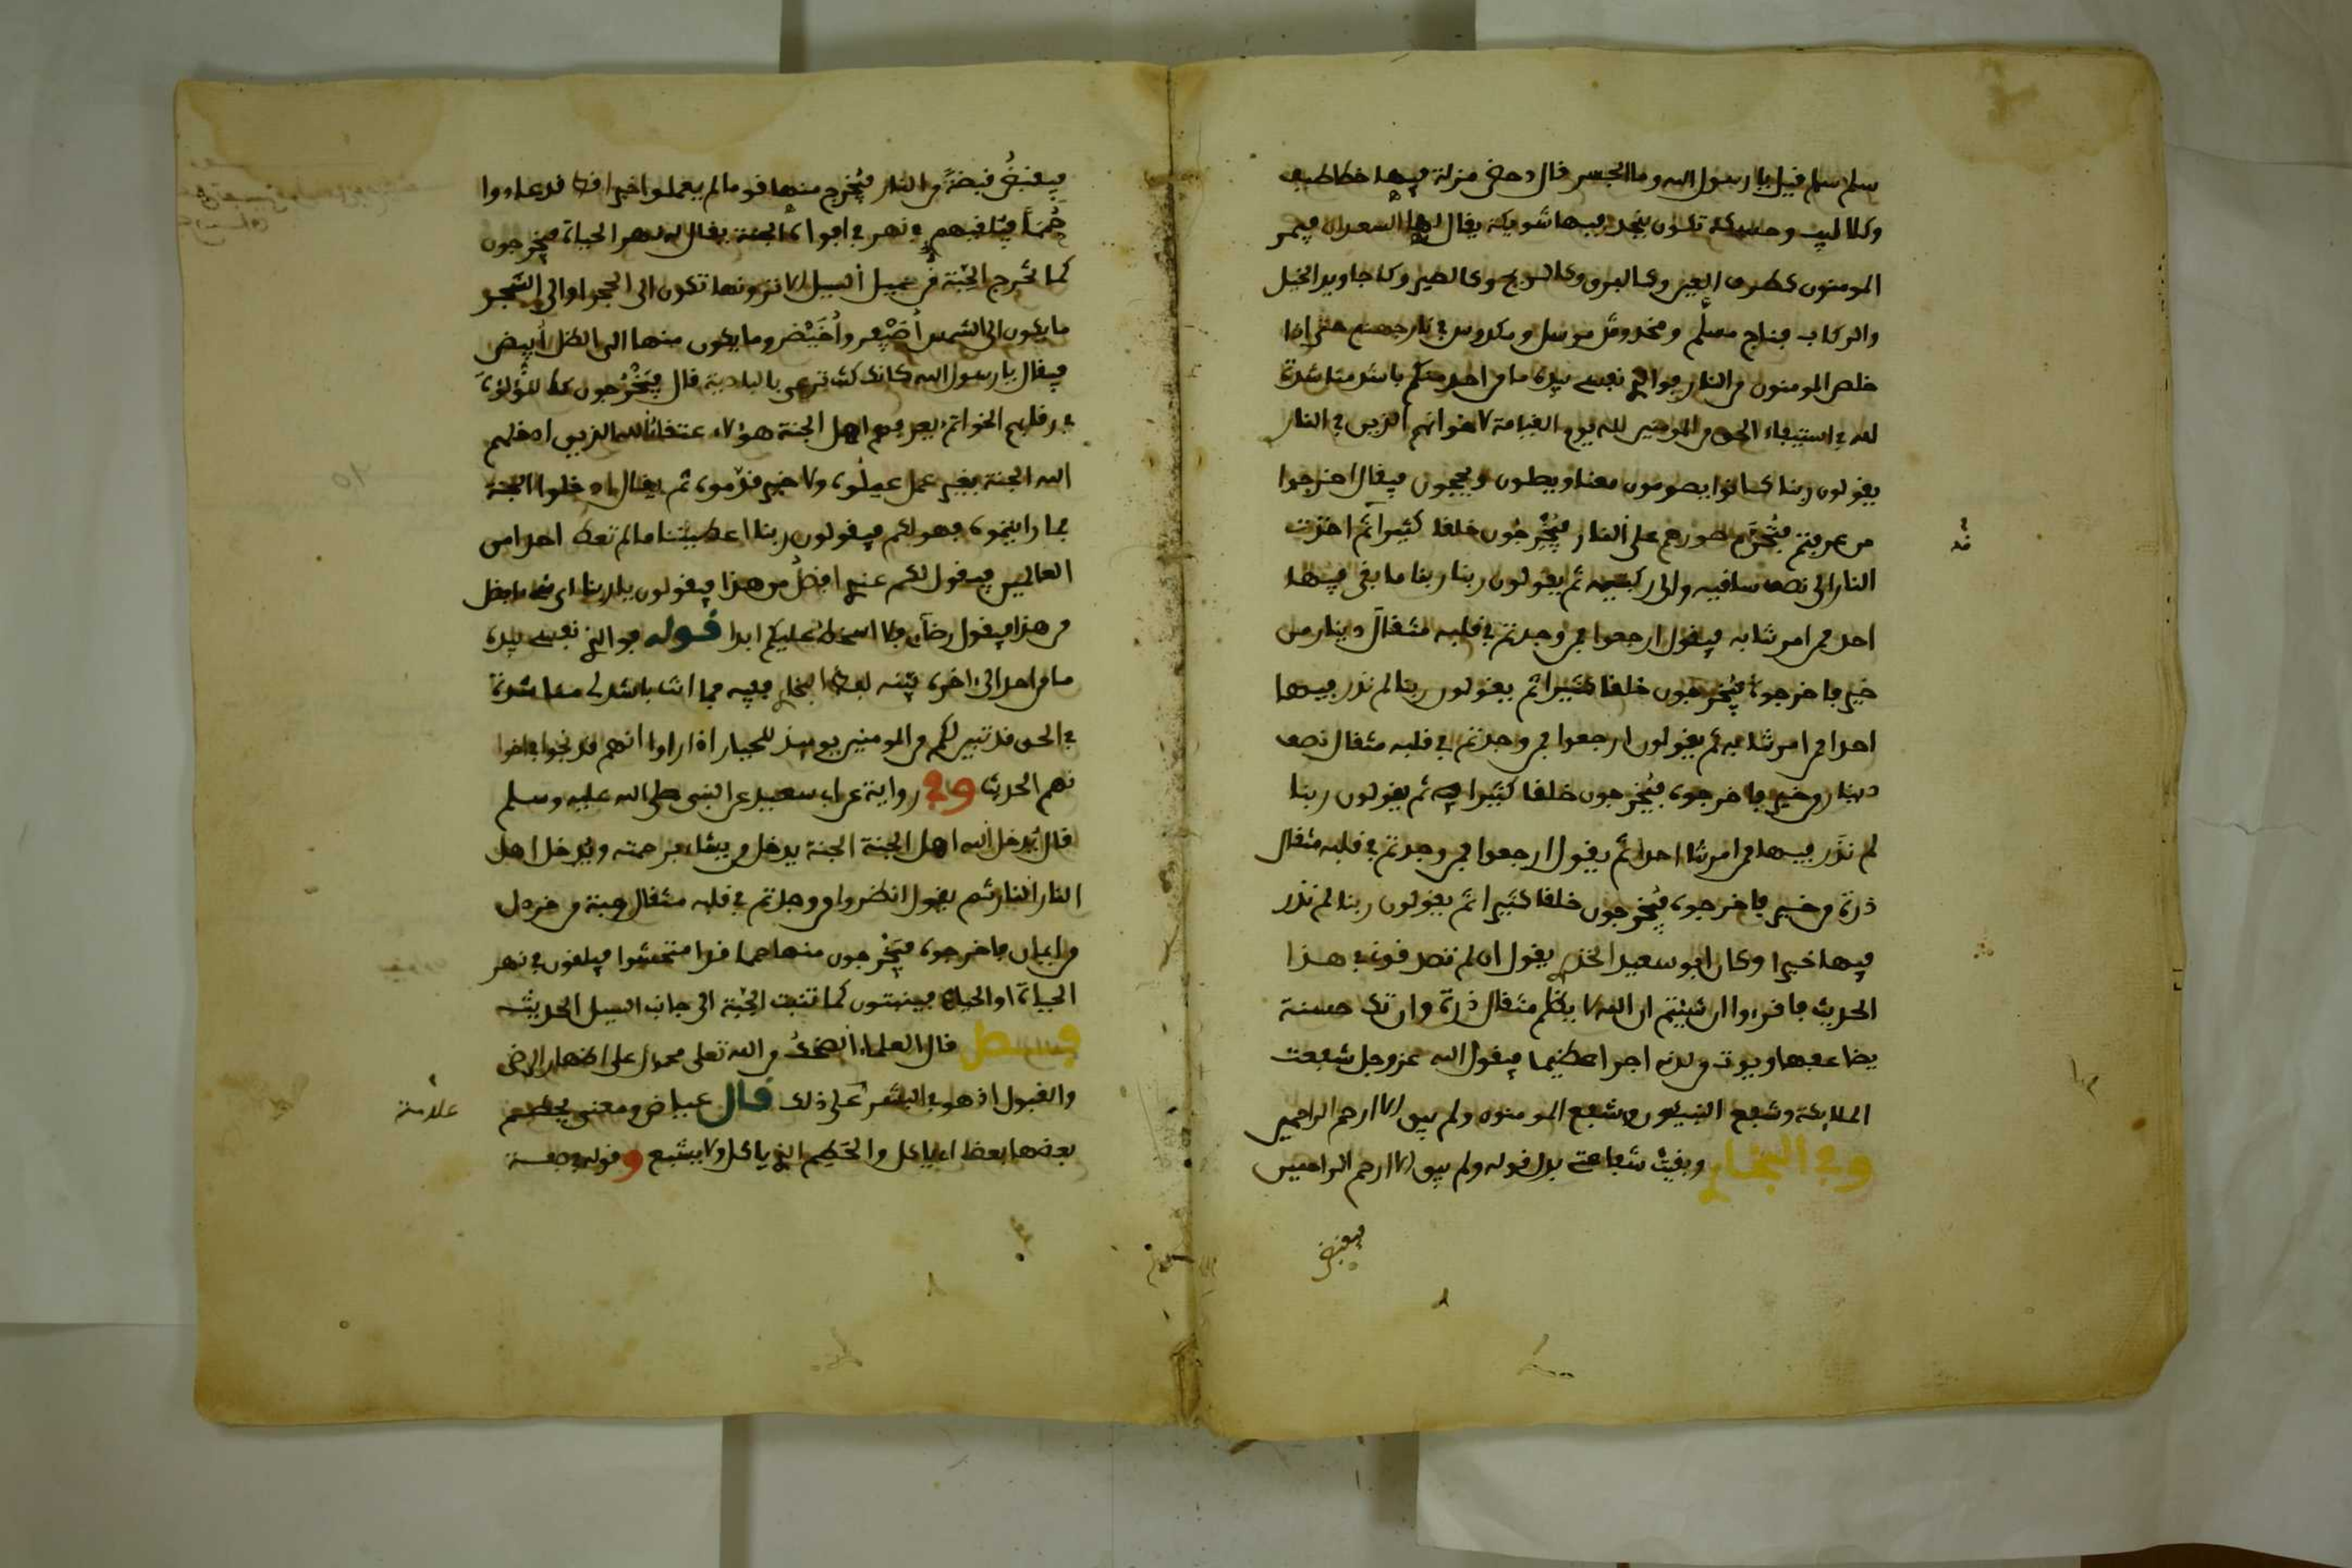 سلم سلم قيل يا رسول الله وما الجسر قال دحض مزلة فيها خطاطيف
وكلاليب وحسكة تكون بنجد فيها شويكة يقال لها السعدان فيمر
المومنون كطرف العين وكالبرق وكالريح وكالطير وكاجاويد الخيل
والركاب فناج مسلم ومخدوش مرسل ومكدوس في نار جهنم حتى اذا
خلص المومنون من النار فوالذي نفسي بيده ما من احد منكم باشد مناشدة
لله في استيفاء الحق من المومنين لله يوم القيامة لاخوانهم الذين في النار
يقولون ربنا كانوا يصومون معنا ويصلون ويحجون فيقال اخرجوا
من عرفتم فتُحَرَّم صورهم على النار فيُخْرِجُون خلقا كثيرا قد اخذت
النار الى نصف ساقيه والى ركبتيه ثم يقولون ربنا ربنا ما بقي فيها
احد ممن امرتنا به فيقول ارجعوا فمن وجدتم في قلبه مثقال دينار من
خير فاخرجوه فيُخرجون خلقا كثيرا ثم يقولون ربنا لم نذر فيها
احدا ممن امرتنا به ثم يقولون ارجعوا فمن وجدتم في قلبه مثقال نصف
دينار من خير فاخرجوه فيُخرجون خلقا كثيرا ثم يقولون ربنا
لم نذر فيها ممن امرتنا احدا ثم يقول ارجعوا فمن وجدتم في قلبه مثقال
ذرة من خير فاخرجوه فيُخرجون خلقا كثيرا ثم يقولون ربنا لم نذر
فيها خيرا وكان ابو سعيد الخدري يقول ان لم تصدقوني في هذا
الحديث فاقرءوا ان شيتم ان الله لا يظلم مثقال ذرة وان تك حسنة
يضاعفها ويوت من لدنه اجرا عظيما فيقول الله عز وجل شفعت
الملايكة وشفع النبيون وشفع المومنون ولم يبق الا ارحم الراحمين
وفي البخاري وبقيت شفاعتي بدل قوله ولم يبق الا ارحم الراحمين
فيقبض
فيقبضُ قبضةً من النار فيُخرج منها قوما لم يعملوا خيرا قط قد عادوا
حُمَمًا فيلقيهم في نهر في افواه الجنة يقال له نهر الحياة فيخرجون
كما تخرج الحِبّة في حميل السيل الا ترونها تكون الى الحجر او الى الشجر
ما يكون الى الشمس أُصَيْفِر وأُخَيْضِر وما يكون منها الى الظل أبيض
فيقال يا رسول الله كانك كنت ترعى بالبادية قال فيَخْرُجون كاللُّؤلؤ
في رقابهم الخواتم يعرفهم اهل الجنة هؤلاء عتقاء الله الذين ادخلهم
الله الجنة بغير عمل عملوه ولا خير قدموه ثم يقال ادخلوا الجنة
فما رايتموه فهو لكم فيقولون ربنا اعطيتنا ما لم تعط احدا من
العالمين فيقول لكم عندي افضلُ من هذا فيقولون يا ربنا اي شيء افضل
من هذا فيقول رضآي فلا اسخط عليكم ابدا قوله فوالذي نفسي بيده
ما من احد الى اخره بينه لفظ البخاري فيه فما انتم باشد لي مناشدة
في الحق قد تبين لكم من المومنين يوميذ للجبار اذا راوا انهم قد نجوا في اخوا
نهم الحديث وفي رواية عن ابي سعيد عن النبي صلى الله عليه وسلم
قال يُدخل الله اهل الجنة الجنة يدخل من يشاء برحمته ويدخل اهل
النار النار ثم يقول انظروا من وجدتم في قلبه مثقال حبة من خردل
من ايمان فاخرجوه فيَخْرجون منها حمما قد امتحشوا فيلقون في نهر
الحياة او الحيا فينبتون كما تنبت الحِبّة الى جانب السيل الحديث
فصل قال العلماء الضحك من الله تعلى محمول على اظهار الرضى
والقبول اذ هو في البشر علامة على ذلك قال عياض ومعنى يحطم
بعضها بعضا اي ياكل والحَطِم الذي ياكل ولا يشبع وقوله دحضة
علامة